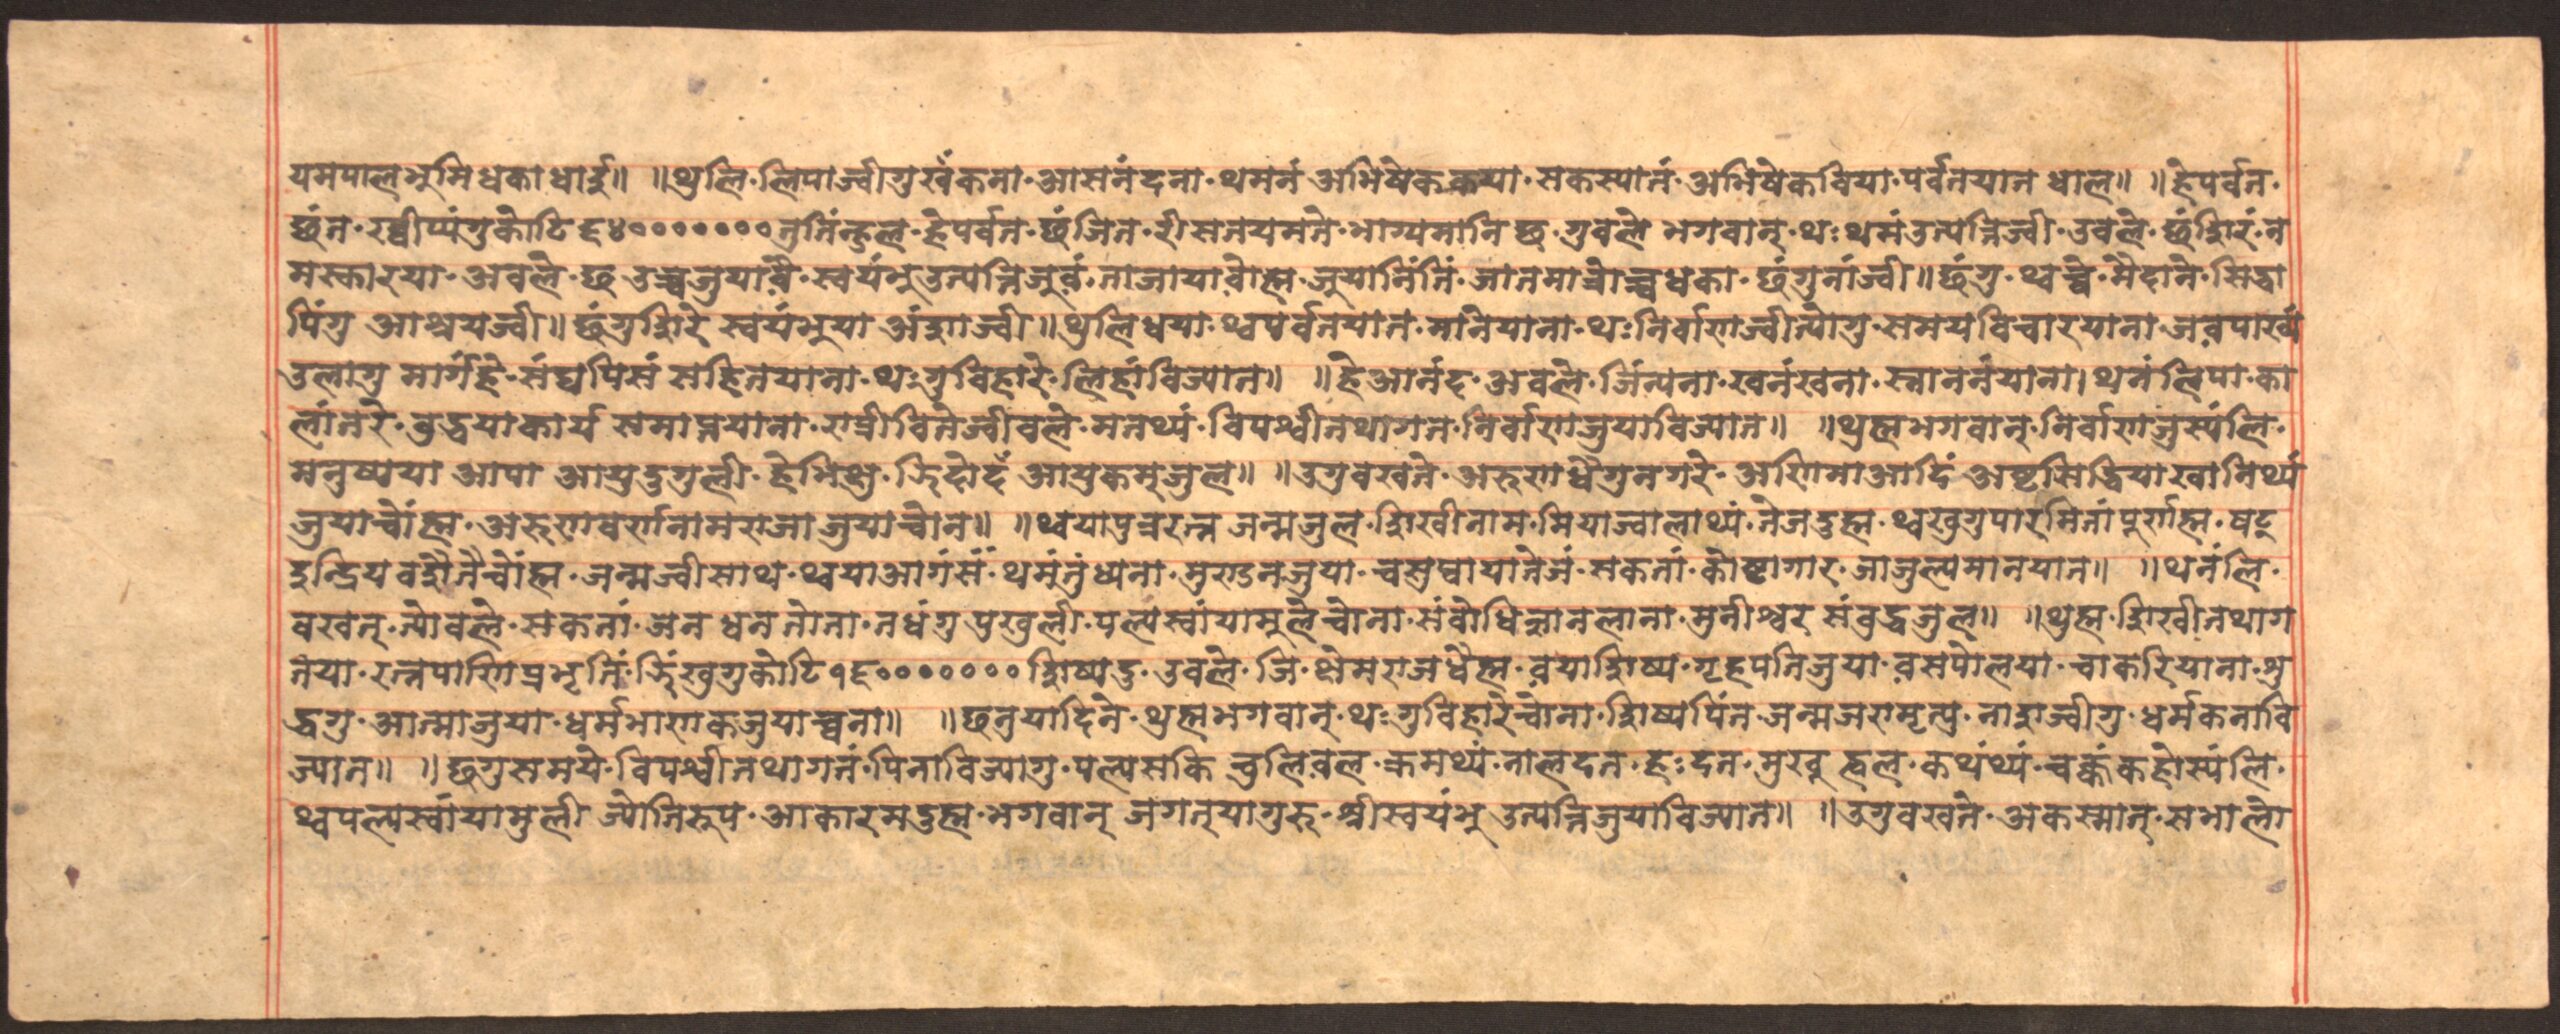 यमपालभुमिधका धाई॥ ॥थुलि॰लिपाज्वीगुखँकना॰आसनंदना॰थमनं अभिषेककया॰सकस्यानं॰अभिषेकविया॰पर्वतयात धाल॥ ॥हेपर्वत॰
छंत॰रव्वीप्यंगुकोटि६४०००००००तुतिंन्हुल॰हेपर्वत॰छंजित॰री सतयमते॰भाग्यमानि छ॰गुवले भगवान्॰थः थमंउत्पत्तिज्वी॰उवले॰छंशिरं॰न
मस्कारया॰अवले॰छ उच्चजुयावै॰स्वयंभुउत्पत्तिजुवं॰ताजायावोह्म॰जुयातिंतिं॰जातमात्रोच्चधका॰छंगुनांज्वी॥छंगु॰थ्वच्चे॰मैदाने॰सिद्धा
पिंगु आश्रयज्वी॥छंगुशिरे स्वयंभुया अंशज्वी॥थुलिधया॰थ्वपर्वतयात॰मानियाना॰थःनिर्वाणज्वीत्योगु॰समयविचारयाना॰जवपाखं
उलागु मार्गहे॰संघपिसं सहितयाना॰थःगुविहारे॰लिहांविज्यात॥ ॥हेआनंद॰अवले॰जिंत्पना॰खनंखना॰स्नाननंयाना।थनंलिपा॰का
लांतरे॰बुद्धयाकार्य समाप्तयाना॰रात्रीवितेज्वीवले॰मतथ्यं॰विपश्वीतथागत॰निर्वाणजुयाविज्यात॥ ॥थुह्मभगवान्॰निर्वाणजुस्यंलि॰
मनुष्यया आपा आयुदुगुली॰हेभिक्षु॰झिदोदँ आयुकमजुल॥ ॥उगुवखते॰अरुणधैगुनगरे॰अणिमाआदिं अष्टसिद्धियाखानिथ्यं
जुयाच्वोंह्म॰अरुणवर्णनामराजा जुयाचोन॥ ॥थ्वयापुत्ररत्न जन्मजुल॰शिखीनाम॰मियाज्वालाथ्यं॰तेजदुह्म॰थ्वखुगुपारमितां पूर्णह्म॰षट्
इन्द्रिय वशेतैचोंह्म॰जन्मज्वीसाथ॰थ्वयाआगंसं॰थमुंतुंध्यना॰मुरुडनजुया॰चस्रघ्वायातेजं॰सकतां॰कोष्टागार॰जाजुल्यमानयात॥ ॥थनंलि॰
वखत्॰त्योवले॰सकतां॰अन धन तोता॰नधंगु पुखुली॰पल्यस्वांयामुलेचोना॰संबोधिज्ञानलाना॰मुनीश्वर संबुद्धजुल॥ ॥थुह्म॰शिखीतथाग
तया॰रत्नपाणिप्रभृतिं॰झिंखुगुकोटि१६०००००००शिष्यदु॰उवले॰जि॰क्षेमराजधैह्म॰वयाशिष्य॰गृहपतिजुया॰वसपोलया॰चाकरियाना॰शु
द्धगु॰आत्माजुया॰धर्मभाणकजुयाच्वना॥ ॥छन्हुयादिने॰थुह्मभगवान्॰थःगुविहारेचोना॰शिष्यपिंत॰जन्मजरामृत्यु॰नाशज्वीगु॰धर्मकनावि
ज्यात॥ ॥छगुसमये॰विपश्वीतथागतं॰पिनाविज्यागु॰पल्यसकि चुलिवल॰क्रमथ्यं॰नालदत॰हःदत॰मुखु ह्वल॰कथंथ्यं॰चक्कंकहोस्यंलि॰
थ्वपल्यस्वांयामुली ज्योतिरुप॰आकारमदुह्म॰भगवान् जगत्‌यागुरु॰श्रीस्वयंभु उत्पत्तिजुयाविज्यात॥ ॥उगुवखते॰अकस्मात्॰सभालो